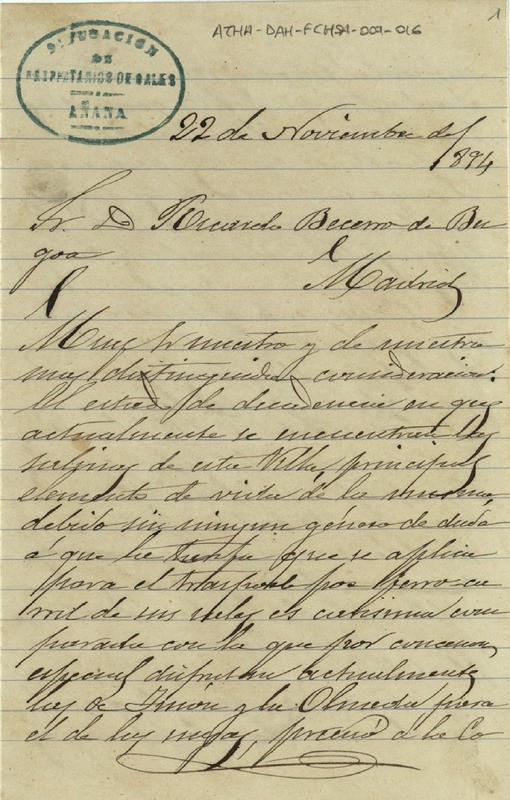 ATHA-DAH-FCHSA-009-016
1
DIPUTACION
DE
PROPIETARIOS DE SALES
AÑANA
22 de Noviembre de
1894
Sr. D Ricardo Becerro de Ben
goa
Madrid
Muy Sr nuestro y de nuestra
mas distinguida consideracion:
El estado de decadencia en que
actualmente se encuentran las
salinas de esta Villa, principal
elemento de vida de la misma,
debido sin ningun género de duda
á que la tarifa que se aplica
para el trasporte por ferro-ca
rril de sus sales es carisima com
parada con la que por concesion
especial disfrutan actualmente
las de Imón y la Olmeda para
el de las suyas, precisó á la Co